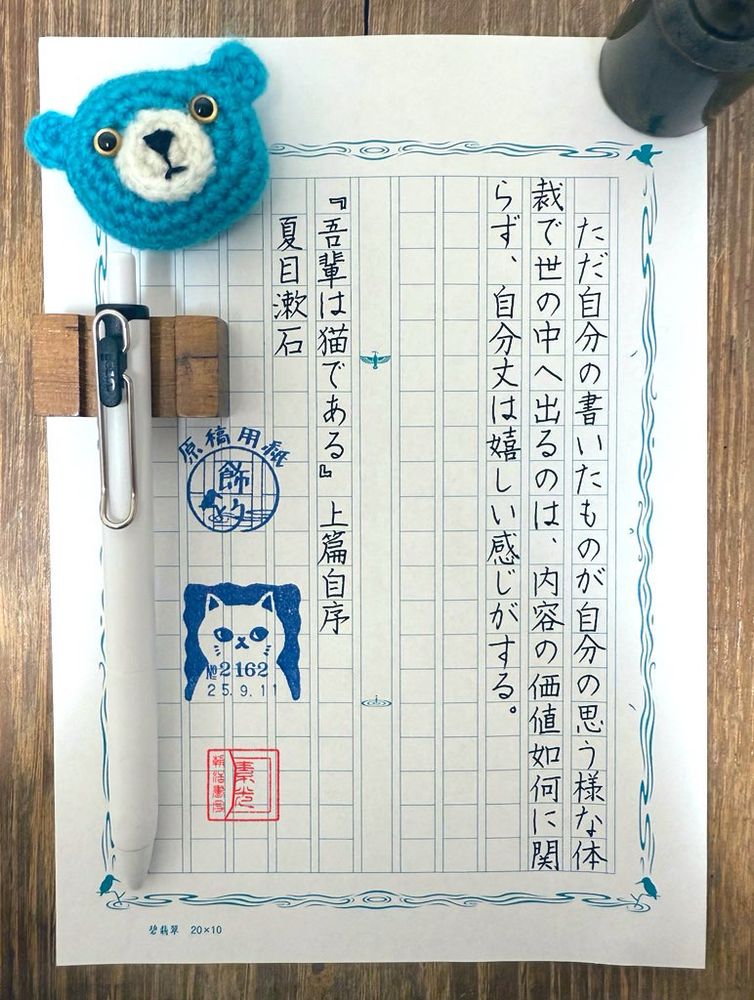 ただ自分の書いたものが自分の思う様な体
裁で世の中へ出るのは、内容の価値如何に関
らず、自分丈は嬉しい感じがする。
『吾輩は猫である』上篇自序
夏目漱石
原稿用紙
飾
№2162
25.9.11
碧翡翠 20×10